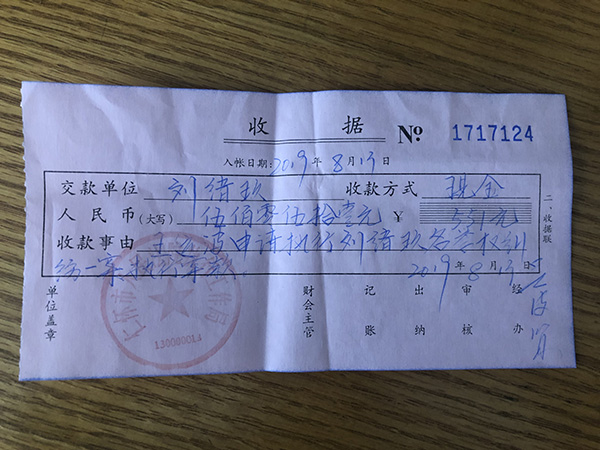 收 据 № 1717124
入帐日期: 2019年8月13日
交款单位 刘绪玖 收款方式 现金
人民币(大写) 伍佰零伍拾壹元 ¥ 551元
收款事由 王 申请执行刘绪玖名誉权纠
纷一案执行案款 2019年8月13日
二、收据联
单位盖章
财会主管
记账
出纳
审核
经办
13000001